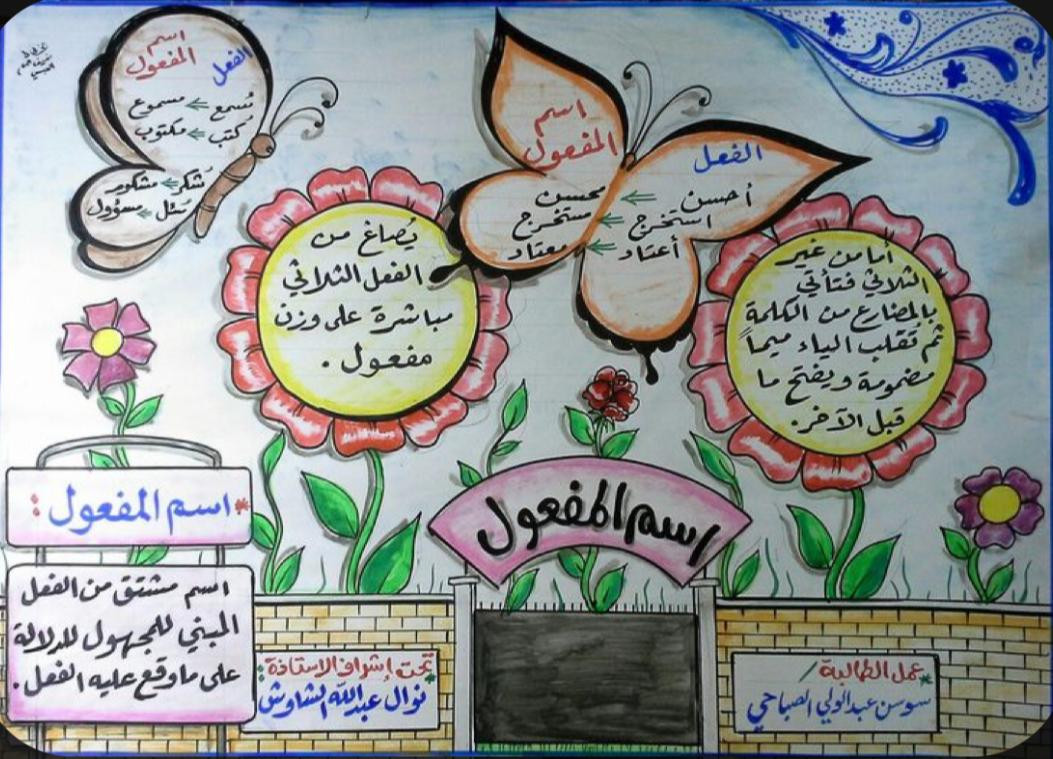 اسم المفعول
اسم
المفعول
الفعل
تُسمع ← مسموع
كُتب ← مكتوب
شُكر ← مشكور
سُئل ← مسؤول
اسم
المفعول
الفعل
أحسن ← محسن
استخرج ← مستخرج
أعتاد ← معتاد
يُصاغ من
الفعل الثلاثي
مباشرة على وزن
مفعول .
أما من غير
الثلاثي فتأتي
بالمضارع من الكلمة
ثم تقلب الياء ميماً
مضمومة ويفتح ما
قبل الآخر.
* اسم المفعول :
اسم مشتق من الفعل
المبني للمجهول للدلالة
على ما وقع عليه الفعل .
تحت إشراف الاستاذة :
نوال عبدالله الشاوش
* عمل الطالبة /
سوسن عبدالولي الصباحي